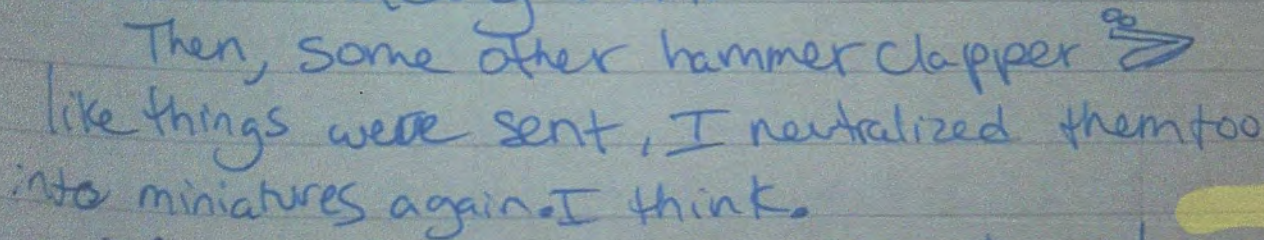 Then, some other hammer clapper
like things were sent, I neutralized them too
into miniatures again. I think.